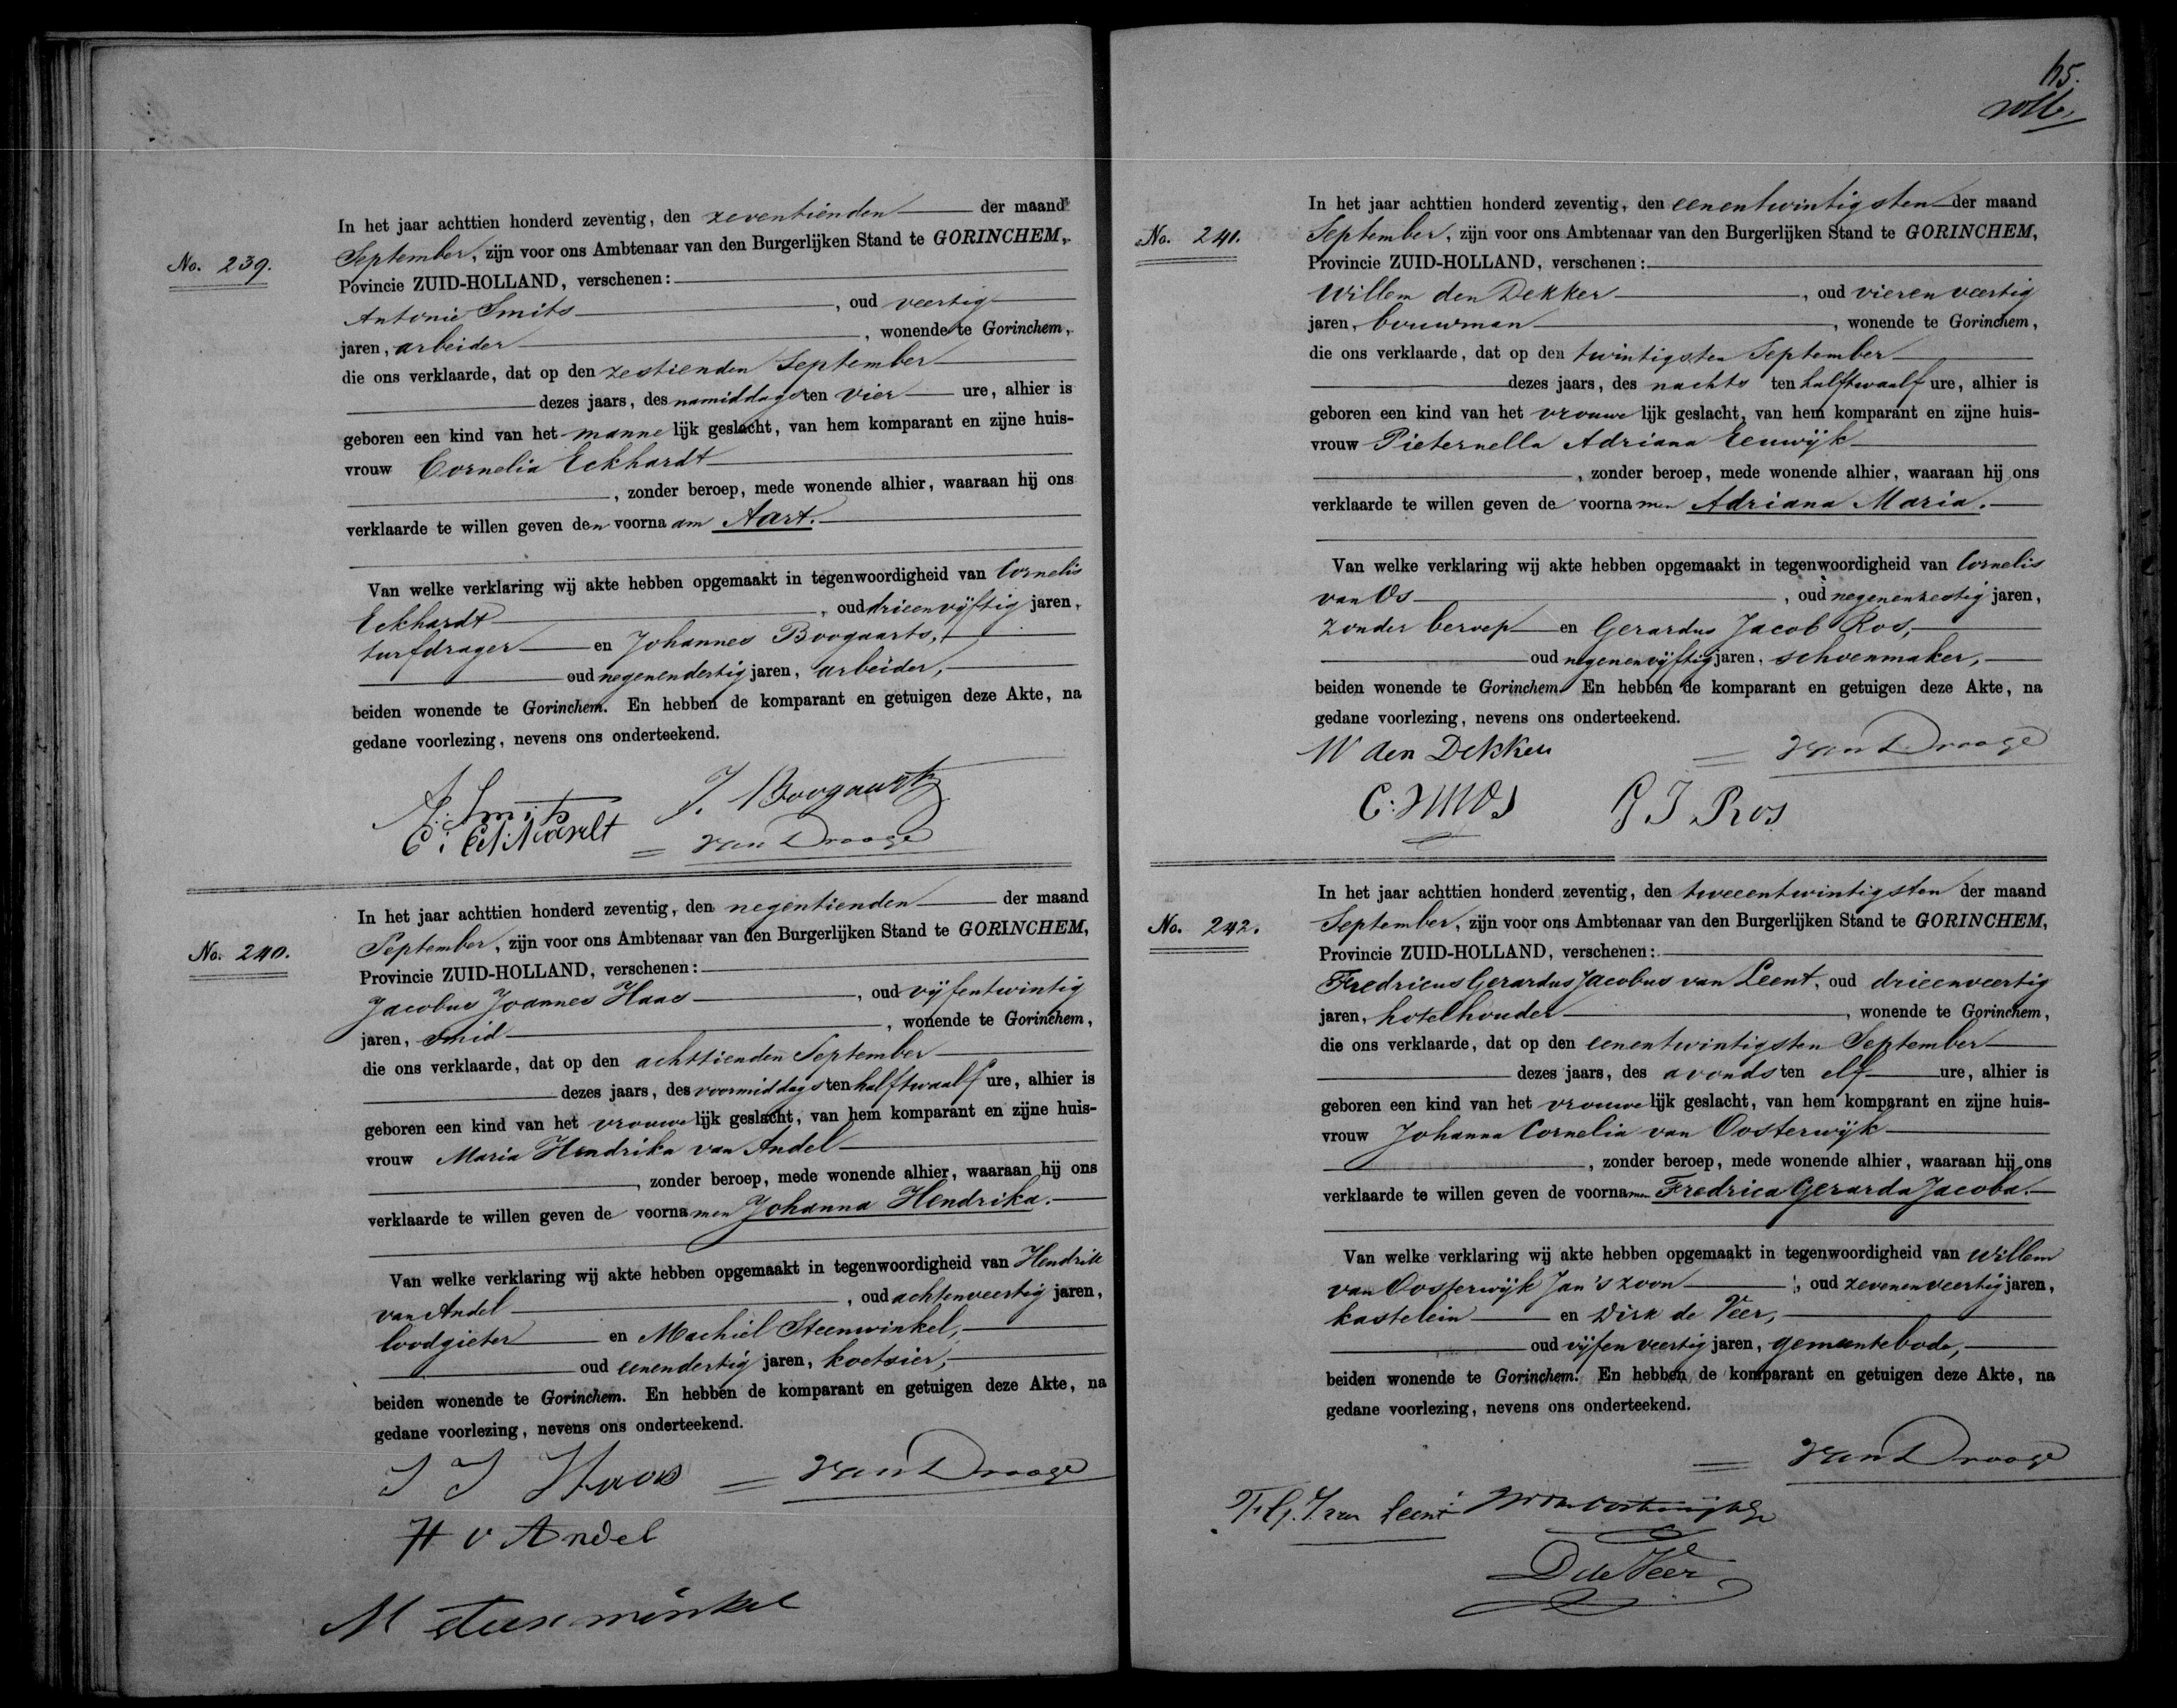 No. 239.
In het jaar achttien honderd zeventig, den zeventienden der maand
September, zijn voor ons Ambtenaar van den Burgerlijken Stand te GORINCHEM,
Povincie ZUID-HOLLAND, verschenen:
Antonie Smits, oud veertig
jaren, arbeider, wonende te Gorinchem,
die ons verklaarde, dat op den zestienden September
dezes jaars, des namiddags ten vier ure, alhier is
geboren een kind van het mannelijk geslacht, van hem komparant en zijne huis-
vrouw Cornelia Eckhardt
, zonder beroep, mede wonende alhier, waaraan hij ons
verklaarde te willen geven den voornaam Aart.
Van welke verklaring wij akte hebben opgemaakt in tegenwoordigheid van Cornelis
Eckhardt, oud drieenvijftig jaren,
turfdrager en Johannes Boogaarts,
oud negenendertig jaren, arbeider,
beiden wonende te Gorinchem. En hebben de komparant en getuigen deze Akte, na
gedane voorlezing, nevens ons onderteekend.
A. Smits J. Boogaarts
C. van Drooge
No. 240.
In het jaar achttien honderd zeventig, den negentienden der maand
September, zijn voor ons Ambtenaar van den Burgerlijken Stand te GORINCHEM,
Provincie ZUID-HOLLAND, verschenen:
Jacobus Joannes Haas, oud vijfentwintig
jaren, smid, wonende te Gorinchem,
die ons verklaarde, dat op den achttienden September
dezes jaars, des voormiddags ten halftwaalf ure, alhier is
geboren een kind van het vrouwelijk geslacht, van hem komparant en zijne huis-
vrouw Maria Hendrika van Andel
, zonder beroep, mede wonende alhier, waaraan hij ons
verklaarde te willen geven de voornamen Johanna Hendrika.
Van welke verklaring wij akte hebben opgemaakt in tegenwoordigheid van Hendrik
van Andel, oud achtenveertig jaren,
loodgieter en Machiel Steenwinkel,
oud eenendertig jaren, koetsier,
beiden wonende te Gorinchem. En hebben de komparant en getuigen deze Akte, na
gedane voorlezing, nevens ons onderteekend.
J J Haas van Drooge
H v Andel
M Steenwinkel
No. 241.
In het jaar achttien honderd zeventig, den eenentwintigsten der maand
September, zijn voor ons Ambtenaar van den Burgerlijken Stand te GORINCHEM,
Provincie ZUID-HOLLAND, verschenen:
Willem den Dekker, oud vierenveertig
jaren, bouwman, wonende te Gorinchem,
die ons verklaarde, dat op den twintigsten September
dezes jaars, des nachts ten halftwaalf ure, alhier is
geboren een kind van het vrouwelijk geslacht, van hem komparant en zijne huis-
vrouw Pieternella Adriana Eeuwijk
, zonder beroep, mede wonende alhier, waaraan hij ons
verklaarde te willen geven de voornamen Adriana Maria.
Van welke verklaring wij akte hebben opgemaakt in tegenwoordigheid van Cornelis
van Os, oud negenenzestig jaren,
zonder beroep en Gerardus Jacob Ros,
oud negenenvijftig jaren, schoenmaker,
beiden wonende te Gorinchem. En hebben de komparant en getuigen deze Akte, na
gedane voorlezing, nevens ons onderteekend.
W den Dekker van Drooge
C: van Os G J Ros
No. 242.
In het jaar achttien honderd zeventig, den tweeentwintigsten der maand
September, zijn voor ons Ambtenaar van den Burgerlijken Stand te GORINCHEM,
Provincie ZUID-HOLLAND, verschenen:
Fredricus Gerardus Jacobus van Leent, oud drieenveertig
jaren, hotelhouder, wonende te Gorinchem,
die ons verklaarde, dat op den eenentwintigsten September
dezes jaars, des avonds ten elf ure, alhier is
geboren een kind van het vrouwelijk geslacht, van hem komparant en zijne huis-
vrouw Johanna Cornelia van Oosterwijk
, zonder beroep, mede wonende alhier, waaraan hij ons
verklaarde te willen geven de voornamen Fredrica Gerarda Jacoba.
Van welke verklaring wij akte hebben opgemaakt in tegenwoordigheid van Willem
van Oosterwijk Jan's zoon, oud zevenenveertig jaren,
kastelein en Dirk de Veer,
oud vijfenveertig jaren, gemeentebode,
beiden wonende te Gorinchem. En hebben de komparant en getuigen deze Akte, na
gedane voorlezing, nevens ons onderteekend.
van Drooge
F. G. J. van Leent W van Oosterwijk
D de Veer